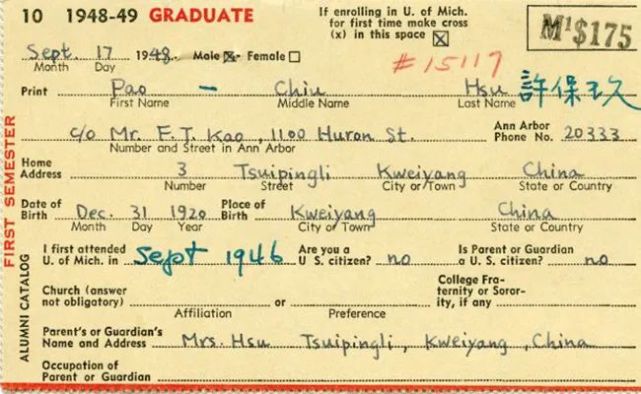 10 1948-49 GRADUATE
If enrolling in U. of Mich. for first time make cross (x) in this space ☒
M¹$175
Sept. 17 1948. Male ☒ Female ☐
Month Day
#15117
Print Pao - Chiu Hsu 許保玖
First Name Middle Name Last Name
c/o Mr. F. T. Kao, 1100 Huron St. Ann Arbor Phone No. 20333
Number and Street in Ann Arbor
Home Address 3 Tsuipingli Kweiyang China
Number Street City or Town State or Country
Date of Birth Dec. 31 1920 Place of Birth Kweiyang China
Month Day Year City or Town State or Country
I first attended U. of Mich. in Sept 1946 Are you a U.S. citizen? no Is Parent or Guardian a U.S. citizen? no
Church (answer not obligatory) or College Fraternity or Sorority, if any
Affiliation Preference
Parent's or Guardian's Name and Address Mrs. Hsu Tsuipingli, Kweiyang, China
Occupation of Parent or Guardian
FIRST SEMESTER
ALUMNI CATALOG